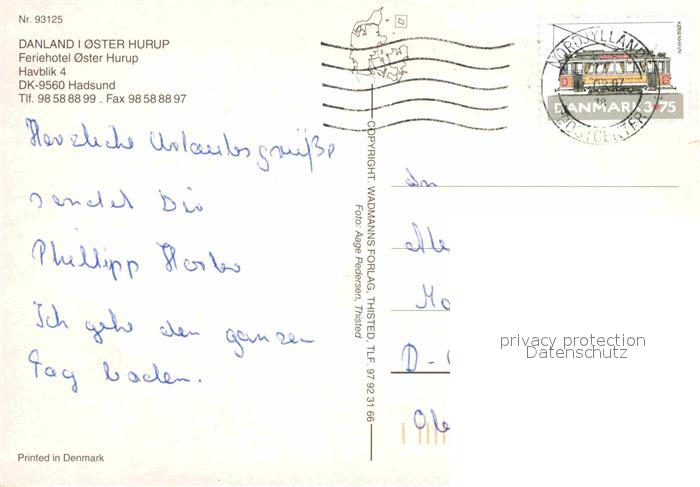 Nr. 93125
DANLAND I ØSTER HURUP
Feriehotel Øster Hurup
Havblik 4
DK-9560 Hadsund
Tlf. 98 58 88 99 . Fax 98 58 88 97
Herzliche Urlaubsgrüße
sendet Dir
Phillipp
Ich gehe den ganzen
Tag baden.
Printed in Denmark
COPYRIGHT. WADMANNS FORLAG, THISTED, TLF. 97 92 31 66
Foto: Aage Pedersen, Thisted
KØBENHAVN
DANMARK 3.75
NORDJYLLANDS
POSTCENTER
An
D-
privacy protection
Datenschutz